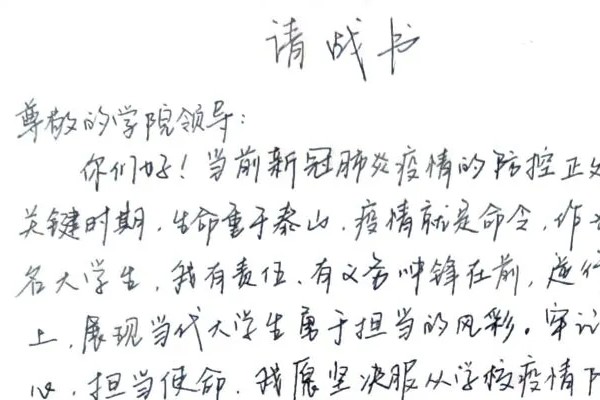 请战书
尊敬的学院领导：
你们好！当前新冠肺炎疫情的防控正处
关键时期，生命重于泰山，疫情就是命令，作为
名大学生，我有责任、有义务冲锋在前，逆行
上，展现当代大学生勇于担当的风彩。牢记
心，担当使命，我愿坚决服从学校疫情防